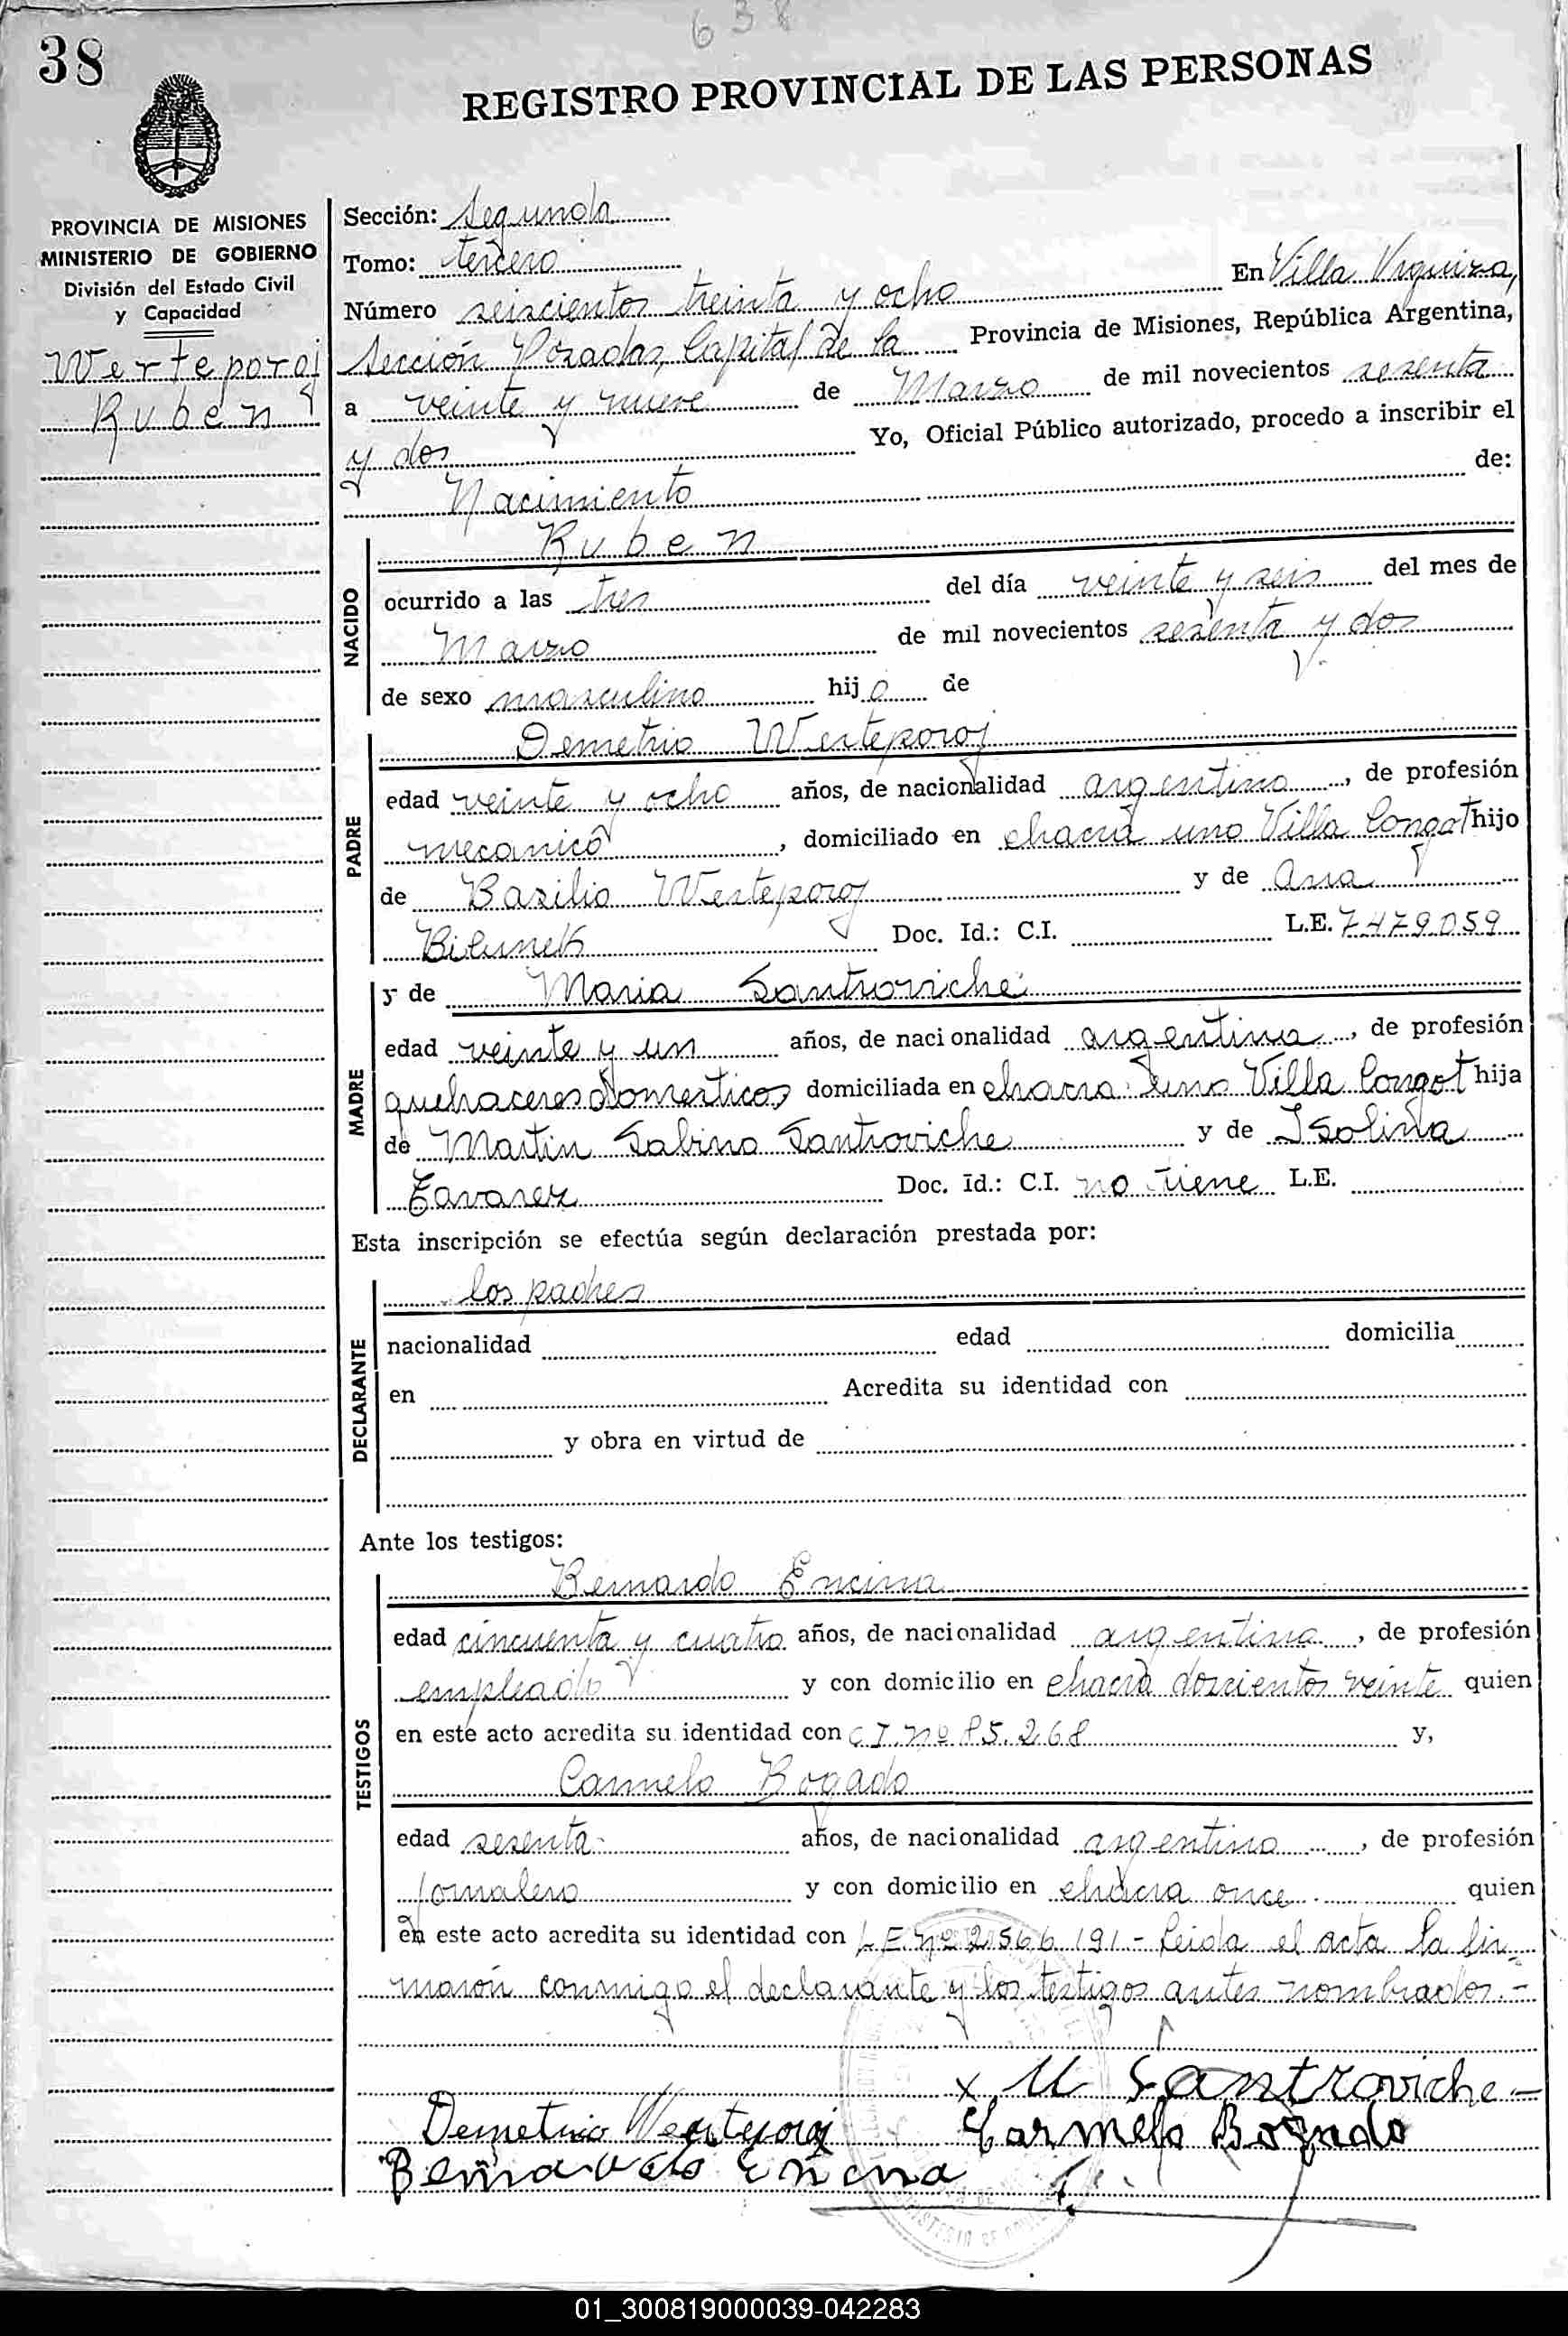 638
38
REGISTRO PROVINCIAL DE LAS PERSONAS
PROVINCIA DE MISIONES
MINISTERIO DE GOBIERNO
División del Estado Civil
y Capacidad
Werteporoj
Ruben
Sección: Segunda
Tomo: tercero
Número seiscientos treinta y ocho En Villa Urquiza,
Sección Posadas, Capital de la Provincia de Misiones, República Argentina,
a veinte y nueve de Marzo de mil novecientos sesenta
y dos Yo, Oficial Público autorizado, procedo a inscribir el
Nacimiento de:
NACIDO
Ruben
ocurrido a las tres del día veinte y seis del mes de
Marzo de mil novecientos sesenta y dos
de sexo masculino hijo de
PADRE
Demetrio Werteporoj
edad veinte y ocho años, de nacionalidad argentino, de profesión
mecanico, domiciliado en chacra uno Villa Longot hijo
de Basilio Werteporoj y de Ana
Doc. Id.: C.I. L.E. 7479059
MADRE
y de Maria Santroviche
edad veinte y un años, de nacionalidad argentina, de profesión
quehaceres domesticos domiciliada en chacra uno Villa Longot hija
de Martin Sabino Santroviche y de Isolina
Tavarez Doc. Id.: C.I. no tiene L.E.
Esta inscripción se efectúa según declaración prestada por:
DECLARANTE
los padres
nacionalidad edad domicilia
en Acredita su identidad con
y obra en virtud de
Ante los testigos:
TESTIGOS
Bernardo Encina
edad cincuenta y cuatro años, de nacionalidad argentino, de profesión
empleado y con domicilio en chacra doscientos veinte quien
en este acto acredita su identidad con C I. nº 85.268 y,
Carmelo Bogado
edad sesenta años, de nacionalidad argentino, de profesión
jornalero y con domicilio en chacra once quien
en este acto acredita su identidad con L.E. nº 2566191.- Leida el acta la fir=
maron conmigo el declarante y los testigos antes nombrados.-
x M Santroviche
Demetrio Werteporoj Carmelo Bogado
Bernardo Encina
01_300819000039-042283